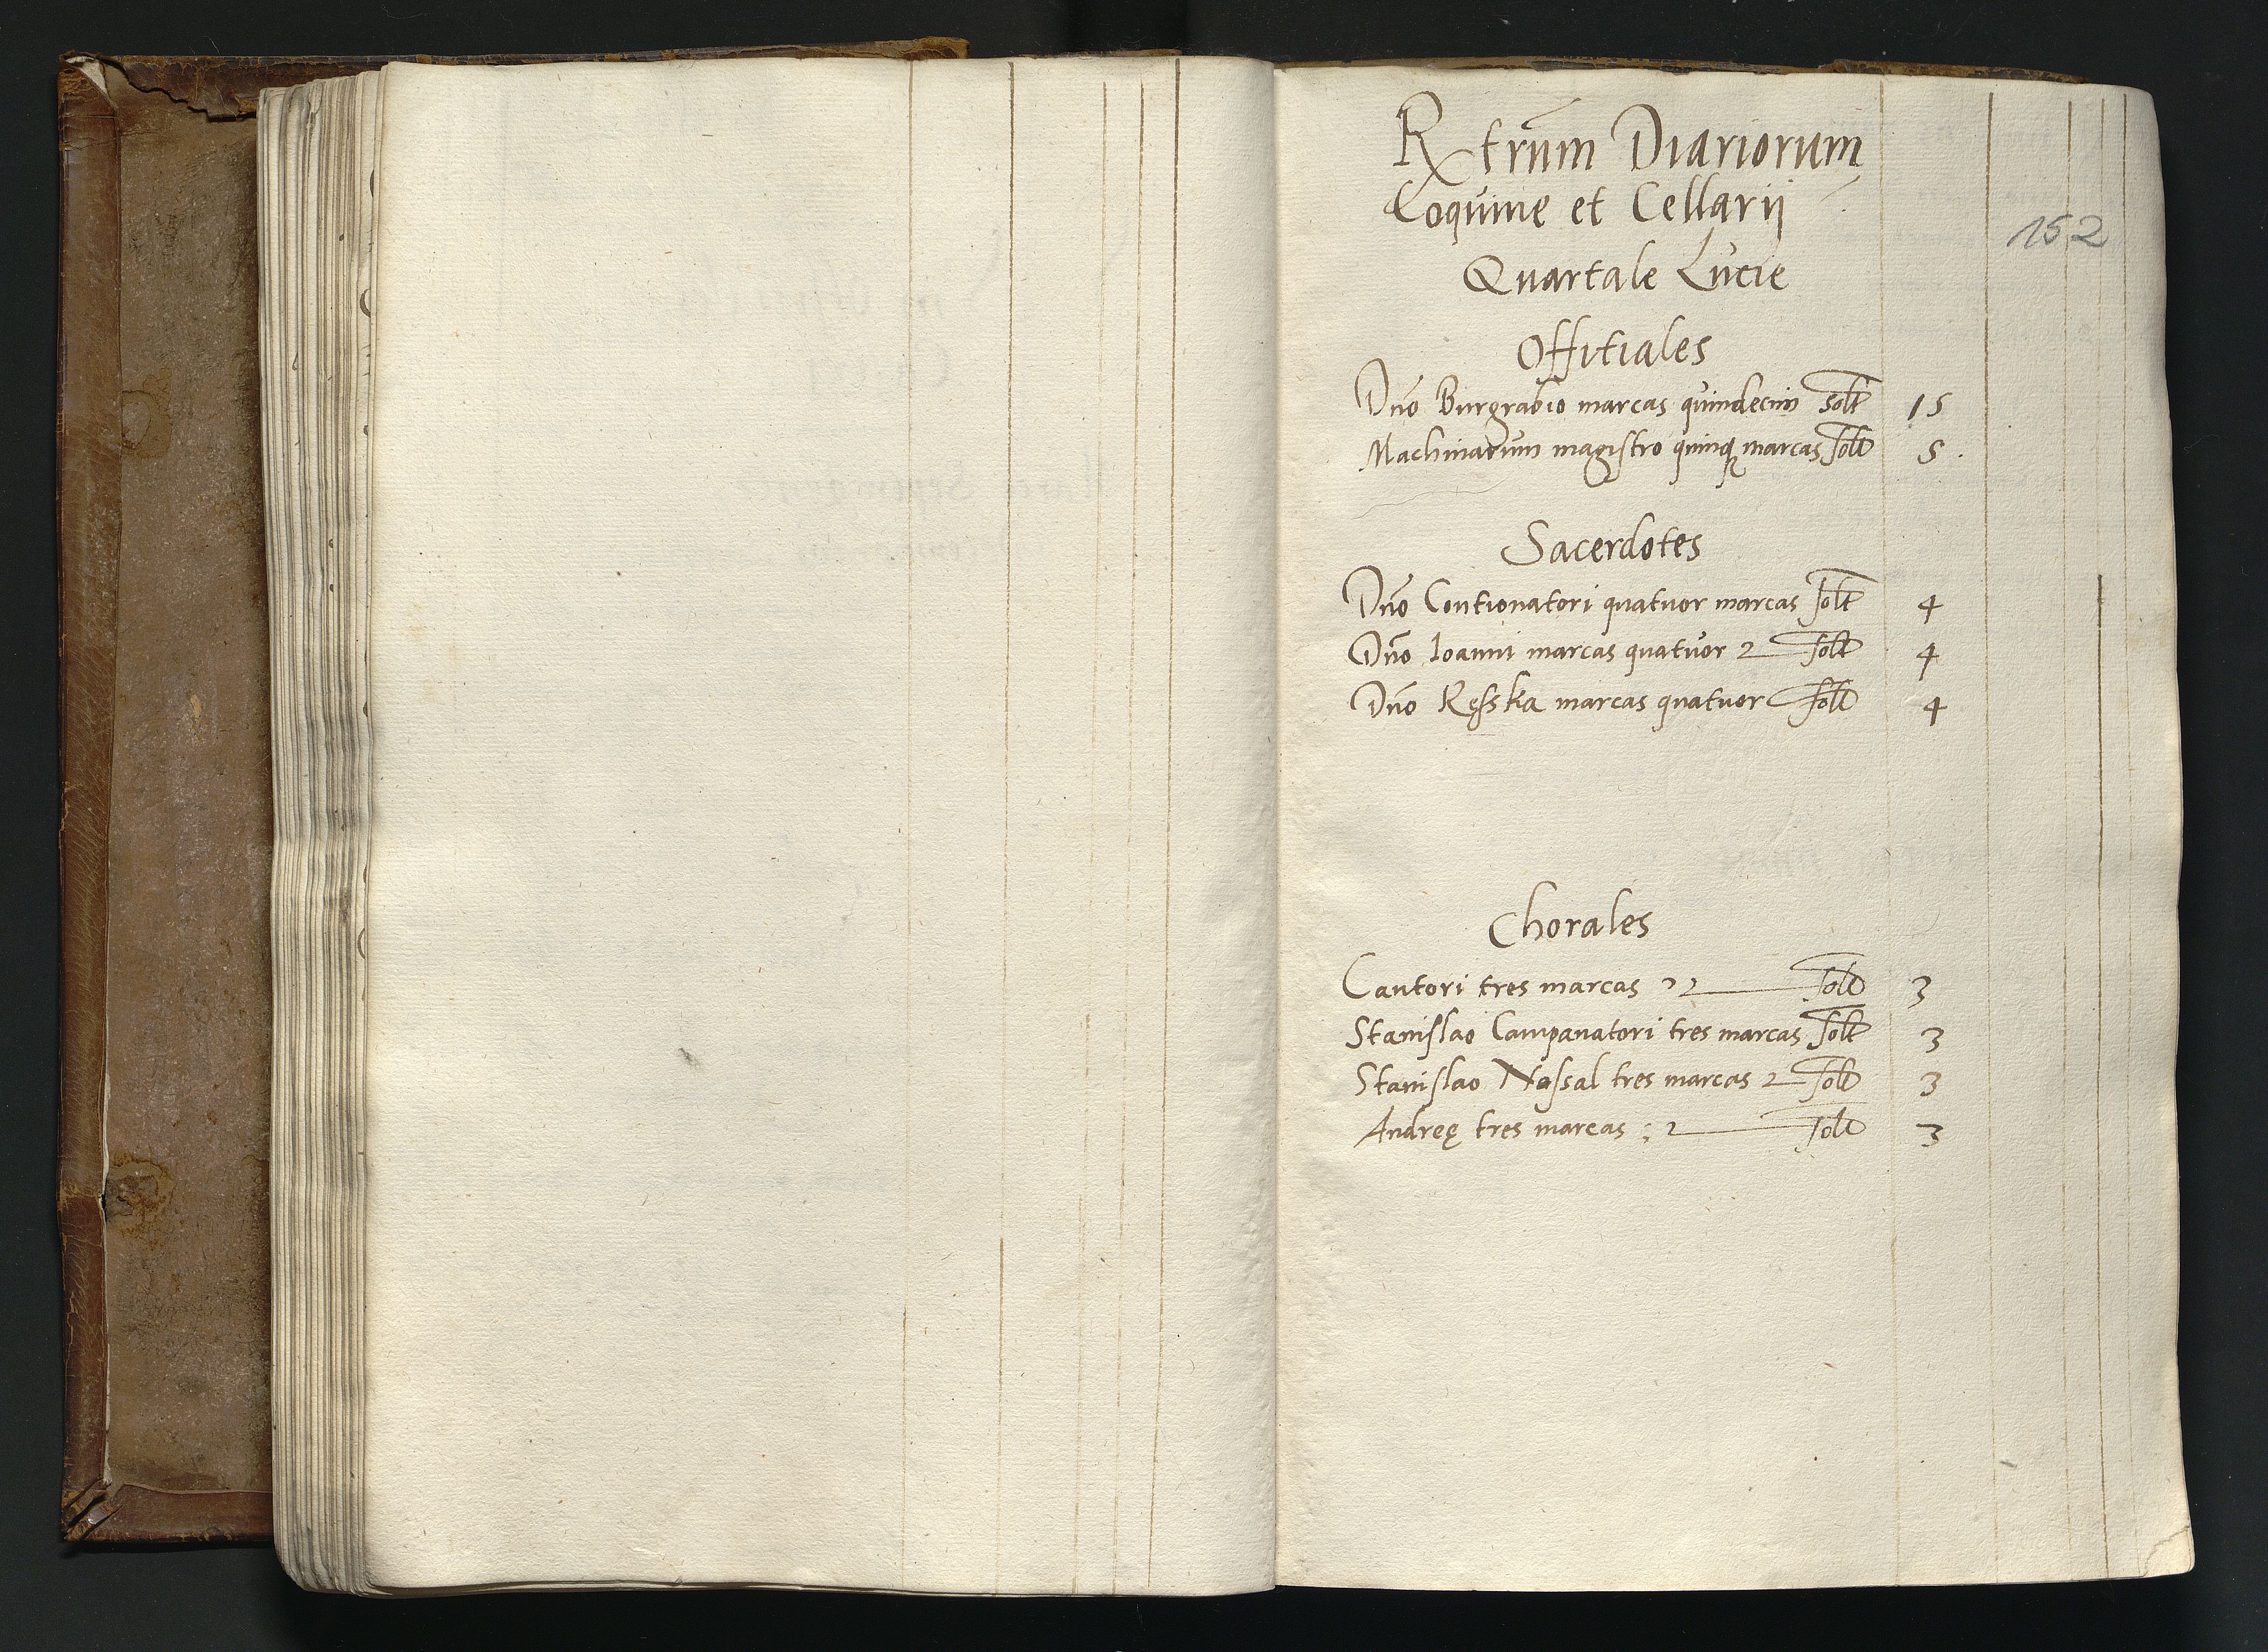 Rx trum Diariorum
Coquine et Cellarij
152
Quartale Lucie
Offitiales
Dno Burgrabio marcas quindecim solt 15
Machinarum magistro quinq marcas solt 5
Sacerdotes
Dno Contionatori quatuor marcas solt 4
Dno Ioanni marcas quatuor solt 4
Dno Resska marcas quatuor solt 4
Chorales
Cantori tres marcas solt 3
Stanislao Campanatori tres marcas solt 3
Stanislao Nossal tres marcas solt 3
Andreę tres marcas solt 3